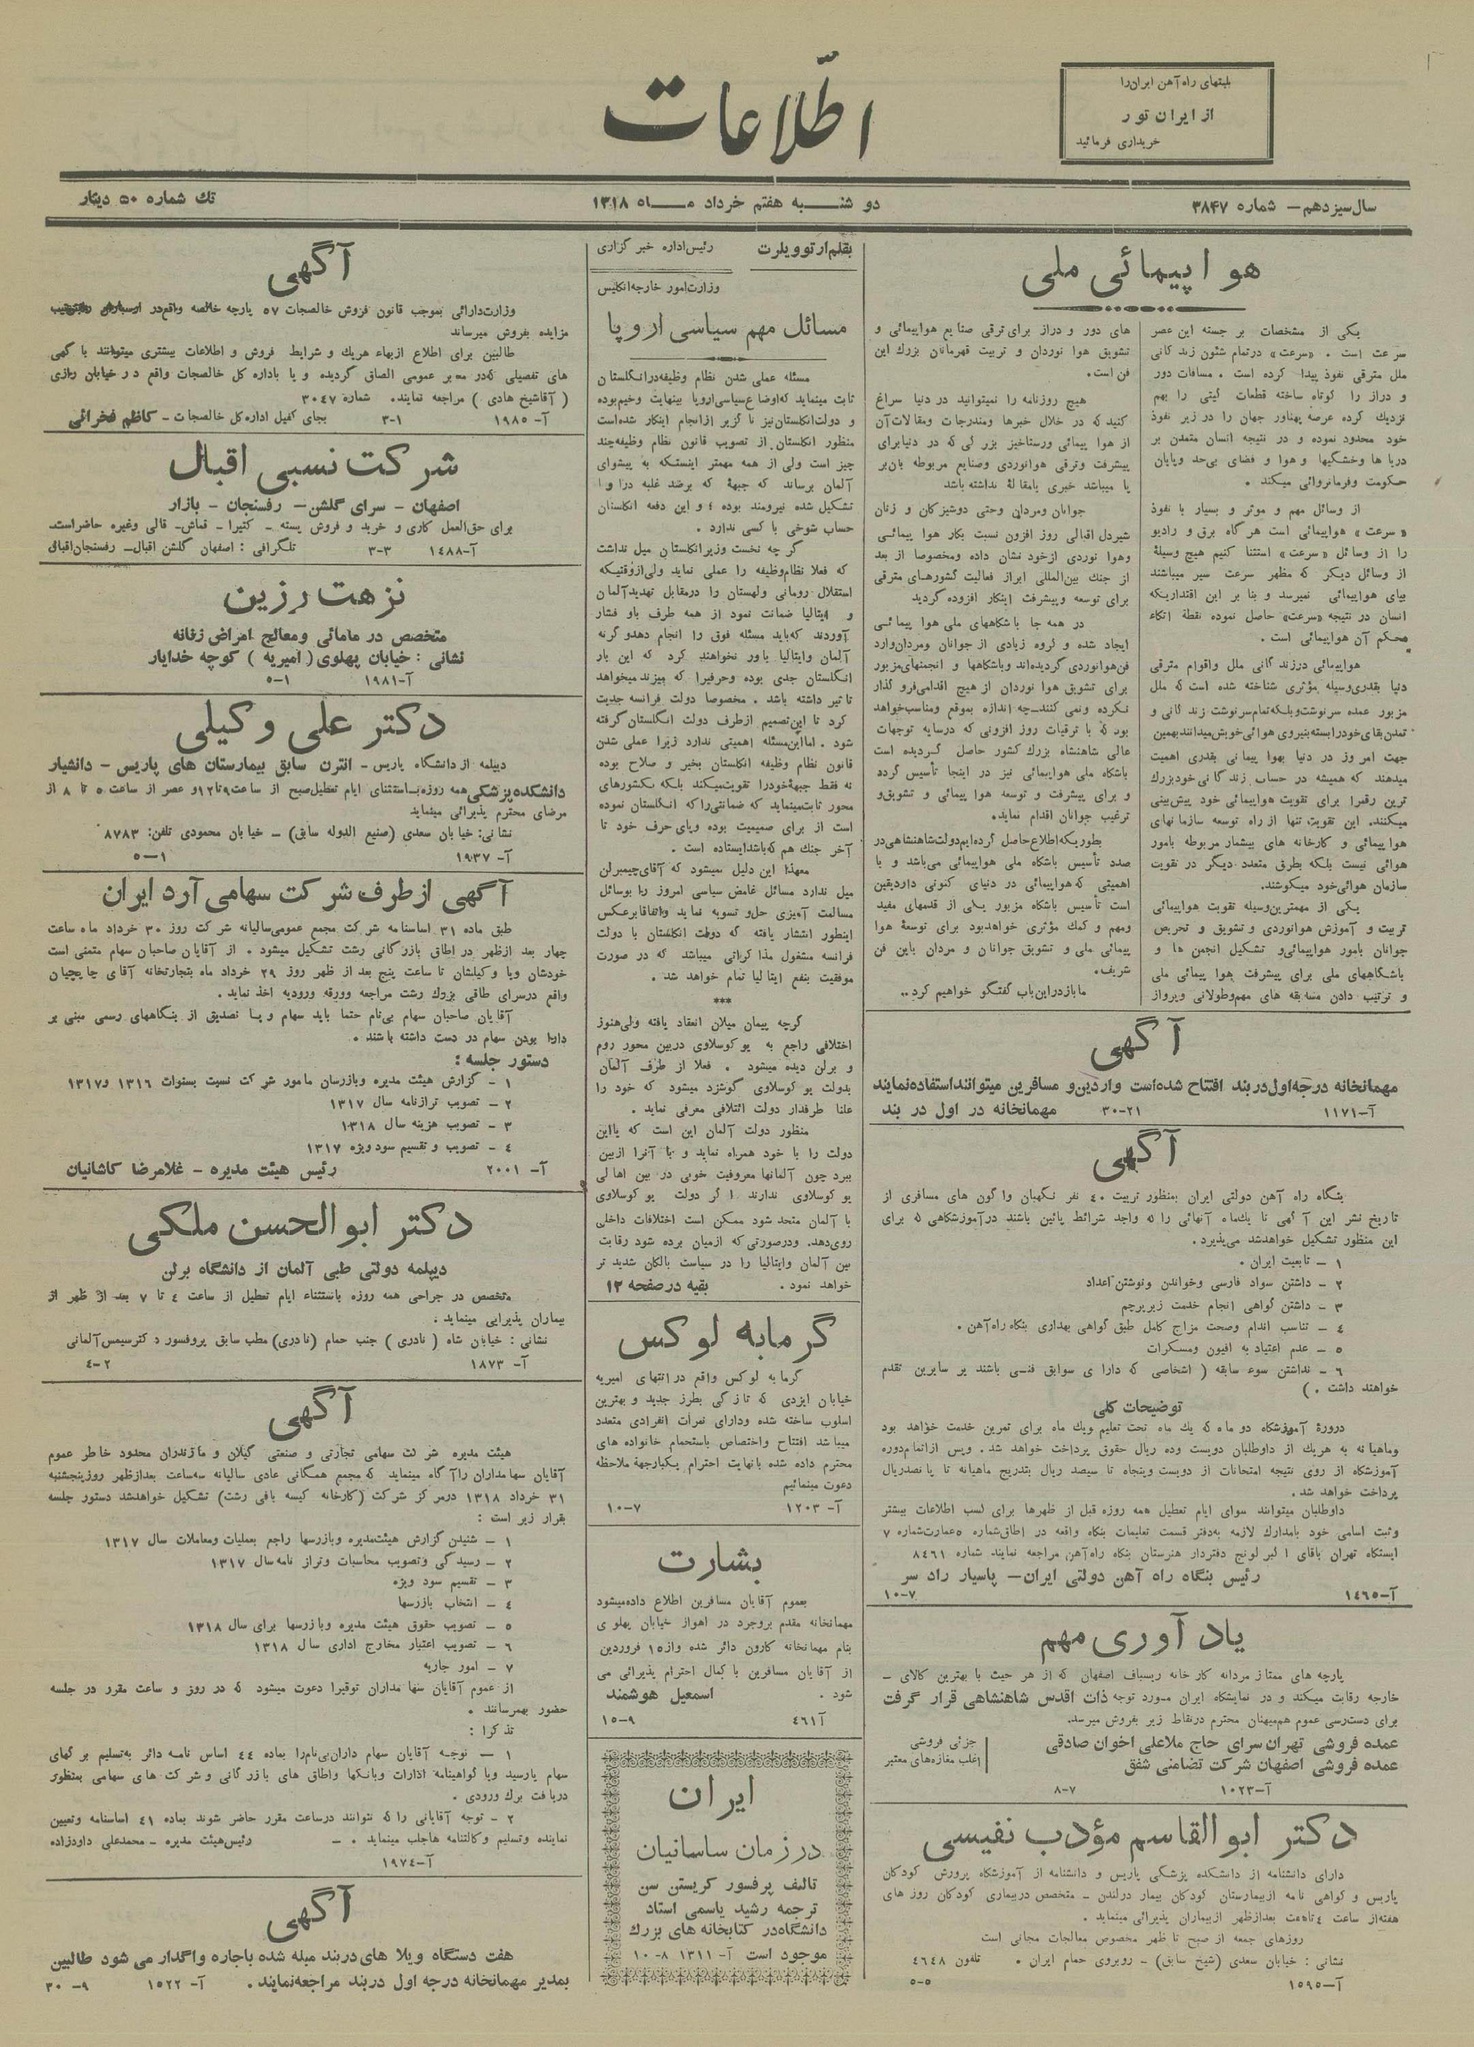 بلیتهای راه آهن ایران را
از ایران تور
خریداری فرمائید
اطلاعات
سال سیزدهم — شماره ۳۸۴۷
دو شنبه هفتم خرداد ماه ۱۳۱۸
تك شماره ۵۰ دینار
هواپیمائی ملی
یکی از مشخصات بر جسته این عصر
سرعت است . «سرعت» در تمام شئون زندگانی
ملل مترقی نفوذ پیدا کرده است . مسافات دور
و دراز را کوتاه ساخته قطعات گیتی را بهم
نزدیك کرده عرصه پهناور جهان را در زیر نفوذ
خود محدود نموده و در نتیجه انسان متمدن بر
دریا ها وخشگیها و هوا و فضای بی‌حد وپایان
حکومت وفرمانروائی میکند .
از وسائل مهم و موثر و بسیار با نفوذ
« سرعت » هواپیمائی است هر گاه برق و رادیو
را از وسائل «سرعت» استثنا کنیم هیچ وسیلهٔ
از وسائل دیگر که مظهر سرعت سیر میباشند
بپای هواپیمائی نمیرسد و بنا بر این اقتداریکه
انسان در نتیجه «سرعت» حاصل نموده نقطهٔ اتکاء
محکم آن هواپیمائی است .
هواپیمائی درزندگانی ملل واقوام مترقی
دنیا بقدری وسیله مؤثری شناخته شده است که ملل
مزبور عمده سرنوشت وبلکه تمام سرنوشت زندگانی و
تمدن بقای خود را بسته بنیروی هوائی خویش میدانند بهمین
جهت امروز در دنیا بهوا پیمائی بقدری اهمیت
میدهند که همیشه در حساب زندگانی خود بزرك
ترین رقم را برای تقویت هواپیمائی خود پیش‌بینی
میکنند. این تقویت تنها از راه توسعه سازمانهای
هواپیمائی و کارخانه های بیشمار مربوطه بامور
هوائی نیست بلکه بطرق متعدد دیگر در تقویت
سازمان هوائی خود میکوشند.
یکی از مهمترین وسیله تقویت هواپیمائی
تربیت و آموزش هوانوردی و تشویق و تحریص
جوانان بامور هواپیمائی و تشکیل انجمن ها و
باشگاههای ملی برای پیشرفت هوا پیمائی ملی
و ترتیب دادن مسابقه های مهم وطولانی وپرواز
های دور و دراز برای ترقی صنایع هواپیمائی و
تشویق هوا نوردان و تربیت قهرمانان بزرك این
فن است.
هیچ روزنامه را نمیتوانید در دنیا سراغ
کنید که در خلال خبرها ومندرجات ومقالات آن
از هوا پیمائی ورستاخیز بزرگی که در دنیا برای
پیشرفت وترقی هوانوردی وصنایع مربوطه بآن بر
پا میباشد خبری یا مقالهٔ نداشته باشد
جوانان ومردان وحتی دوشیزگان و زنان
شیردل اقبالی روز افزون نسبت بکار هوا پیمائی
وهوا نوردی ازخود نشان داده ومخصوصا از بعد
از جنك بین‌المللی ابراز فعالیت کشورهای مترقی
برای توسعه وپیشرفت ابتکار افزوده گردید
در همه جا باشگاههای ملی هوا پیمائی
ایجاد شده و گروه زیادی از جوانان ومردان وارد
فن هوانوردی گردیده‌اند وباشگاهها و انجمنهای مزبور
برای تشویق هوا نوردان از هیچ اقدامی فرو گذار
نکرده ونمی کنند—چه اندازه بموقع ومناسب خواهد
بود که با ترقیات روز افزونی که درسایه توجهات
عالی شاهنشاه بزرك کشور حاصل گردیده است
باشگاه ملی هواپیمائی نیز در اینجا تأسیس گردد
و برای پیشرفت و توسعه هوا پیمائی و تشویق و
ترغیب جوانان اقدام نماید.
بطوریکه اطلاع حاصل کرده ایم دولت شاهنشاهی در
صدد تأسیس باشگاه ملی هواپیمائی می‌باشد و با
اهمیتی که هواپیمائی در دنیای کنونی دارد یقین
است تأسیس باشگاه مزبور یکی از قدمهای مفید
ومهم و کمك مؤثری خواهد بود برای توسعهٔ هوا
پیمائی ملی و تشویق جوانان و مردان باین فن
شریف.
ما باز در این باب گفتگو خواهیم کرد..
آگهی
مهمانخانه درجه اول دربند افتتاح شده است واردین و مسافرین میتوانند استفاده نمایند
آ—۱۱۷۱ ۲۱—۳۰ مهمانخانه در اول در بند
آگهی
بنگاه راه آهن دولتی ایران بمنظور تربیت ۴۰ نفر نگهبان واگون های مسافری از
تاریخ نشر این آگهی تا یکماه آنهائی را که واجد شرائط پائین باشند درآموزشگاهی که برای
این منظور تشکیل خواهدشد می‌پذیرد.
۱ — تابعیت ایران .
۲ — داشتن سواد فارسی وخواندن ونوشتن اعداد
۳ — داشتن گواهی انجام خدمت زیرپرچم
۴ — تناسب اندام وصحت مزاج کامل طبق گواهی بهداری بنگاه راه‌آهن .
۵ — عدم اعتیاد به افیون ومسکرات
۶ — نداشتن سوء سابقه ( اشخاصی که دارای سوابق فنی باشند بر سایرین تقدم
خواهند داشت . )
توضیحات کلی
دورهٔ آموزشگاه دو ماه که یك ماه تحت تعلیم ویك ماه برای تمرین خدمت خواهد بود
وماهیانه به هریك از داوطلبان دویست وده ریال حقوق پرداخت خواهد شد. وپس ازاتمام دوره
آموزشگاه از روی نتیجه امتحانات از دویست وپنجاه تا سیصد ریال بتدریج ماهیانه تا پانصدریال
پرداخت خواهد شد.
داوطلبان میتوانند سوای ایام تعطیل همه روزه قبل از ظهرها برای کسب اطلاعات بیشتر
وثبت اسامی خود بامدارك لازمه به دفتر قسمت تعلیمات بنگاه واقعه در اطاق شماره ۵ عمارت شماره ۷
ایستگاه تهران باقای اکبر لونج دفتردار هنرستان بنگاه راه‌آهن مراجعه نمایند شماره ۸۴۶۱
رئیس بنگاه راه آهن دولتی ایران— پاسیار راد سر
آ—۱۴۶۵ ۷—۱۰
یاد آوری مهم
پارچه های ممتاز مردانه کارخانه ریسباف اصفهان که از هر حیث با بهترین کالای —
خارجه رقابت میکند و در نمایشگاه ایران مورد توجه ذات اقدس شاهنشاهی قرار گرفت
برای دست‌رسی عموم هم‌میهنان محترم درنقاط زیر بفروش میرسد.
عمده فروشی تهران سرای حاج ملاعلی اخوان صادقی
عمده فروشی اصفهان شرکت تضامنی شفق
جزئی فروشی
اغلب مغازه‌های معتبر
آ—۱۰۲۳ ۷—۸
دکتر ابوالقاسم مؤدب نفیسی
دارای دانشنامه از دانشکده پزشکی پاریس و دانشنامه از آموزشگاه پرورش کودکان
پاریس و گواهی نامه ازبیمارستان کودکان بیمار درلندن — متخصص دربیماری کودکان روز های
هفته از ساعت ۴ تا ۷ بعدازظهر ازبیماران پذیرائی مینماید .
روزهای جمعه از صبح تا ظهر مخصوص معالجات مجانی است
نشانی : خیابان سعدی (شیخ سابق) — روبروی حمام ایران . تلفون ۴۶۴۸
آ—۱۵۹۵ ۵—۵
بقلم ارتور ویلرت
رئیس اداره خبر گزاری
وزارت امور خارجه انگلیس
مسائل مهم سیاسی اروپا
مسئله عملی شدن نظام وظیفه در انگلستان
ثابت مینماید که اوضاع سیاسی اروپا بینهایت وخیم بوده
و دولت انگلستان نیز ناگزیر ازانجام ابتکار شده‌است
منظور انگلستان از تصویب قانون نظام وظیفه چند
چیز است ولی از همه مهمتر اینستکه به پیشوای
آلمان برساند که جبههٔ که برضد غلبه در اروپا
تشکیل شده نیرومند بوده و این دفعه انگلستان
حساب شوخی با کسی ندارد .
گر چه نخست وزیر انگلستان میل نداشت
که فعلا نظام وظیفه را عملی نماید ولی ازوقتیکه
استقلال رومانی ولهستان را درمقابل تهدید آلمان
و ایتالیا ضمانت نمود از همه طرف باو فشار
آوردند که باید مسئله فوق را انجام دهد وگرنه
آلمان وایتالیا باور نخواهند کرد که این بار
انگلستان جدی بوده وحرفیرا که میزند میخواهد
تا ثیر داشته باشد . مخصوصا دولت فرانسه جدیت
کرد تا این تصمیم ازطرف دولت انگلستان گرفته
شود . اما این مسئله اهمیتی ندارد زیرا عملی شدن
قانون نظام وظیفه انگلستان بخیر و صلاح بوده
نه فقط جبههٔ خود را تقویت میکند بلکه بکشورهای
محور ثابت مینماید که ضمانتی را که انگلستان نموده
است از برای صمیمیت بوده وپای حرف خود تا
آخر جنك هم که باشد ایستاده است .
معهذا این دلیل نمیشود که آقای چیمبرلن
میل ندارد مسائل غامض سیاسی امروز را بوسائل
مسالمت آمیزی حل و تسویه نماید واتفاقا برعکس
اینطور انتشار یافته که دولت انگلستان با دولت
فرانسه مشغول مذاکراتی میباشد که در صورت
موفقیت بنفع ایتالیا تمام خواهد شد .
***
گرچه پیمان میلان انعقاد یافته ولی هنوز
اختلافی راجع به یوگوسلاوی دربین محور روم
و برلن دیده میشود . فعلا از طرف آلمان
بدولت یوگوسلاوی گوشزد میشود که خود را
علنا طرفدار دولت ائتلافی معرفی نماید .
منظور دولت آلمان این است که یا این
دولت را با خود همراه نماید و یا آنرا ازبین
ببرد چون آلمانها معروفیت خوبی در بین اهالی
یوگوسلاوی ندارند اگر دولت یوگوسلاوی
با آلمان متحد شود ممکن است اختلافات داخلی
روی‌دهد. ودرصورتی که ازمیان برده شود رقابت
بین آلمان وایتالیا را در سیاست بالکان شدید تر
خواهد نمود . بقیه در صفحه ۱۲
گرمابه لوکس
گرمابه لوکس واقع در انتهای امیریه
خیابان ایزدی که تازگی بطرز جدید و بهترین
اسلوب ساخته شده ودارای نمرات انفرادی متعدد
میباشد افتتاح واختصاص باستحمام خانواده های
محترم داده شده بانهایت احترام یکبارجهة ملاحظه
دعوت مینمائیم
آ— ۱۲۰۳ ۷—۱۰
بشارت
بعموم آقایان مسافرین اطلاع داده میشود
مهمانخانه مقدم بروجرد در اهواز خیابان پهلوی
بنام مهمانخانه کارون دائر شده واز ۱۵ فروردین
از آقایان مسافرین با کمال احترام پذیرائی می
شود . اسمعیل هوشمند
آ ۴۶۱ ۹—۱۵
ایران
در زمان ساسانیان
تالیف پرفسور کریستن سن
ترجمه رشید یاسمی استاد
دانشگاه در کتابخانه های بزرك
موجود است آ— ۱۳۱۱ ۸—۱۰
آگهی
وزارت دارائی بموجب قانون فروش خالصجات ۵۷ پارچه خالصه واقع در
مزایده بفروش میرساند
طالبین برای اطلاع ازبهاء هریك و شرایط فروش و اطلاعات بیشتری میتوانند باگهی
های تفصیلی که در معبر عمومی الصاق گردیده و یا باداره کل خالصجات واقع در خیابان رازی
( آقاشیخ هادی ) مراجعه نمایند. شماره ۳۰۴۷
آ— ۱۹۸۵ ۱—۳ بجای کفیل اداره کل خالصجات — کاظم فخرائی
شرکت نسبی اقبال
اصفهان — سرای گلشن— رفسنجان — بازار
برای حق‌العمل کاری و خرید و فروش پسته — کتیرا — قماش— قالی وغیره حاضر است.
آ—۱۴۸۸ ۳—۳ تلگرافی : اصفهان گلشن اقبال— رفسنجان اقبال
نزهت رزین
متخصص در مامائی ومعالج امراض زنانه
نشانی : خیابان پهلوی ( امیریه ) کوچه خدایار
آ—۱۹۸۱ ۱—۵
دکتر علی وکیلی
دیپلمه از دانشگاه پاریس — انترن سابق بیمارستان های پاریس — دانشیار
دانشکده پزشکی همه روزه باستثنای ایام تعطیل صبح از ساعت ۹ تا ۱۲ و عصر از ساعت ۵ تا ۸ از
مرضای محترم پذیرائی مینماید
نشانی: خیابان سعدی (صنیع الدوله سابق) — خیابان محمودی تلفن: ۸۷۸۳
آ— ۱۹۳۷ ۱—۵
آگهی از طرف شرکت سهامی آرد ایران
طبق ماده ۳۱ اساسنامه شرکت مجمع عمومی سالیانه شرکت روز ۳۰ خرداد ماه ساعت
چهار بعد ازظهر در اطاق بازرگانی رشت تشکیل میشود . از آقایان صاحبان سهام متمنی است
خودشان ویا وکیلشان تا ساعت پنج بعد از ظهر روز ۲۹ خرداد ماه بتجارتخانه آقای چایچیان
واقع درسرای طاقی بزرك رشت مراجعه وورقه ورودیه اخذ نماید .
آقایان صاحبان سهام بی‌نام حتما باید سهام و یا تصدیق از بنگاههای رسمی مبنی بر
دارا بودن سهام در دست داشته باشند .
دستور جلسه :
۱ — گزارش هیئت مدیره وبازرسان مامور شرکت نسبت بسنوات ۱۳۱۶ و ۱۳۱۷
۲ — تصویب ترازنامه سال ۱۳۱۷
۳ — تصویب هزینه سال ۱۳۱۸
۴ — تصویب و تقسیم سود ویژه ۱۳۱۷
آ— ۲۰۰۱ رئیس هیئت مدیره — غلامرضا کاشانیان
دکتر ابوالحسن ملکی
دیپلمه دولتی طبی آلمان از دانشگاه برلن
متخصص در جراحی همه روزه باستثناء ایام تعطیل از ساعت ۴ تا ۷ بعد از ظهر از
بیماران پذیرایی مینماید .
نشانی : خیابان شاه ( نادری ) جنب حمام (نادری) مطب سابق پروفسور دکترسیمس آلمانی
آ— ۱۸۷۳ ۲—۴
آگهی
هیئت مدیره شرکت سهامی تجارتی و صنعتی گیلان و مازندران محدود خاطر عموم
آقایان سهامداران را آگاه مینماید که مجمع همگانی عادی سالیانه سه ساعت بعدازظهر روز پنجشنبه
۳۱ خرداد ۱۳۱۸ درمرکز شرکت (کارخانه کیسه بافی رشت) تشکیل خواهدشد دستور جلسه
بقرار زیر است :
۱ — شنیدن گزارش هیئت مدیره وبازرسها راجع بعملیات ومعاملات سال ۱۳۱۷
۲ — رسیدگی وتصویب محاسبات وتراز نامه سال ۱۳۱۷
۳ — تقسیم سود ویژه
۴ — انتخاب بازرسها
۵ — تصویب حقوق هیئت مدیره وبازرسها برای سال ۱۳۱۸
۶ — تصویب اعتبار مخارج اداری سال ۱۳۱۸
۷ — امور جاریه
از عموم آقایان سهامداران توقیرا دعوت میشود که در روز و ساعت مقرر در جلسه
حضور بهمرسانند .
تذکرا :
۱ — توجه آقایان سهام داران بی‌نام را بماده ۴۴ اساس نامه دائر به تسلیم برگهای
سهام یارسید ویا گواهینامه ادارات وبانکها واطاق های بازرگانی وشرکت های سهامی بمنظور
دریافت برك ورودی .
۲ — توجه آقایانی را که نتوانند درساعت مقرر حاضر شوند بماده ۴۱ اساسنامه وتعیین
نماینده وتسلیم وکالتنامه هاجلب مینماید . — رئیس هیئت مدیره — محمدعلی داودزاده
آ—۱۹۷۴
آگهی
هفت دستگاه ویلا های دربند مبله شده باجاره واگذار می شود طالبین
بمدیر مهمانخانه درجه اول دربند مراجعه نمایند . آ— ۱۵۲۲ ۹— ۳۰